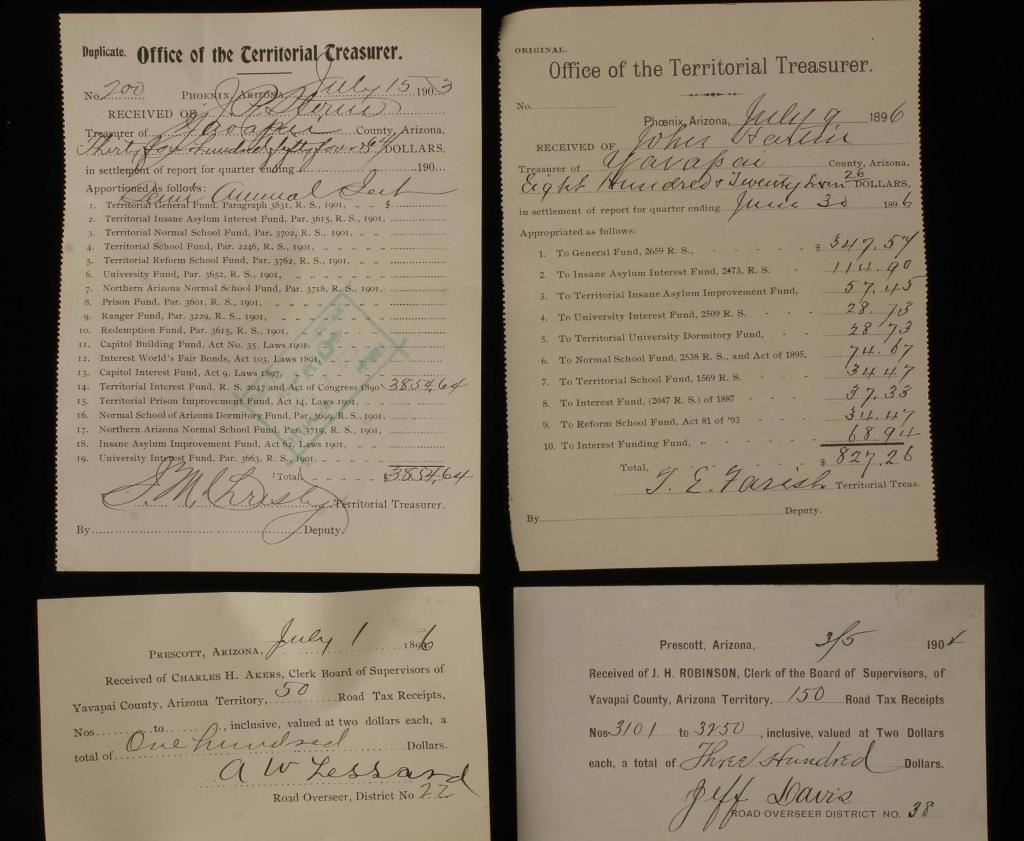 Duplicate. Office of the Territorial Treasurer.
No. 200 PHOENIX, ARIZONA, July 15 1903
RECEIVED OF
Treasurer of Yavapai County, Arizona,
Thirty Hundred fifty four 64 DOLLARS,
in settlement of report for quarter ending 190...
Apportioned as follows: Semi Annual Sett
1. Territorial General Fund, Paragraph 3831, R. S., 1901, $
2. Territorial Insane Asylum Interest Fund, Par. 3615, R. S., 1901,
3. Territorial Normal School Fund, Par. 3702, R. S., 1901,
4. Territorial School Fund, Par. 2246, R. S., 1901,
5. Territorial Reform School Fund, Par. 3762, R. S., 1901,
6. University Fund, Par. 3652, R. S., 1901,
7. Northern Arizona Normal School Fund, Par. 3718, R. S., 1901,
8. Prison Fund, Par. 3601, R. S., 1901,
9. Ranger Fund, Par. 3229, R. S., 1901,
10. Redemption Fund, Par. 3615, R. S., 1901,
11. Capitol Building Fund, Act No. 35, Laws 1901,
12. Interest World's Fair Bonds, Act 103, Laws 1891,
13. Capitol Interest Fund, Act 9, Laws 1897,
14. Territorial Interest Fund, R. S. 2047 and Act of Congress 1890 3854,64
15. Territorial Prison Improvement Fund, Act 14, Laws 1901,
16. Normal School of Arizona Dormitory Fund, Par. 3699, R. S., 1901,
17. Northern Arizona Normal School Fund, Par. 3719, R. S., 1901,
18. Insane Asylum Improvement Fund, Act 62, Laws 1901,
19. University Interest Fund, Par. 3663, R. S., 1901,
Total, $3854,64
Territorial Treasurer.
By Deputy.
ORIGINAL.
Office of the Territorial Treasurer.
No.
Phœnix, Arizona, July 9 1896
RECEIVED OF John
Treasurer of Yavapai County, Arizona,
Eight Hundred & Twenty 26 DOLLARS,
in settlement of report for quarter ending June 30 1896
Appropriated as follows:
1. To General Fund, 2659 R. S., $ 347.57
2. To Insane Asylum Interest Fund, 2473, R. S. 114.90
3. To Territorial Insane Asylum Improvement Fund, 57.45
4. To University Interest Fund, 2509 R. S. 28.73
5. To Territorial University Dormitory Fund, 28 73
6. To Normal School Fund, 2538 R. S., and Act of 1895, 74.67
7. To Territorial School Fund, 1569 R. S. 34 47
8. To Interest Fund, (2047 R. S.) of 1887 37.33
9. To Reform School Fund, Act 81 of '93 34.47
10. To Interest Funding Fund, 68.94
Total, $ 827.26
T. E. Farish Territorial Treas.
By Deputy.
PRESCOTT, ARIZONA, July 1 1896
Received of CHARLES H. AKERS, Clerk Board of Supervisors of
Yavapai County, Arizona Territory, 50 Road Tax Receipts,
Nos. to , inclusive, valued at two dollars each, a
total of One hundred Dollars.
A W Lessard
Road Overseer, District No 22
Prescott, Arizona, 3/5 1904
Received of J. H. ROBINSON, Clerk of the Board of Supervisors, of
Yavapai County, Arizona Territory, 150 Road Tax Receipts
Nos 3101 to 3250, inclusive, valued at Two Dollars
each, a total of Three Hundred Dollars.
Jeff Davis
ROAD OVERSEER DISTRICT NO. 38